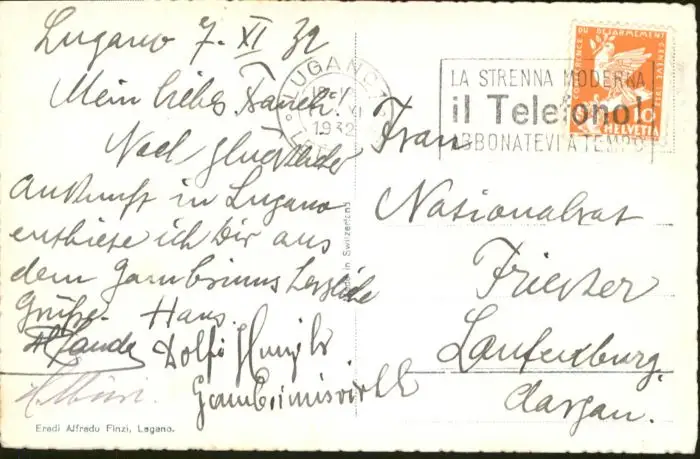 Lugano 7. XI 32
Mein liebes
Nach glücklicher
Ankunft in Lugano
entbiete ich Dir aus
dem Gambrinus herzliche
Grüße. Hans
Dolfi
Gambrinuswirth
Eredi Alfredo Finzi, Lugano.
Made in Switzerland
LUGANO 1
XI
1932
LA STRENNA MODERNA
il Telefono!
ABBONATEVI A TEMPO
CONFERENCE DU DESARMEMENT GENEVE 1932
10
HELVETIA
Frau
Nationalrat
Laufenburg.
Aargau.